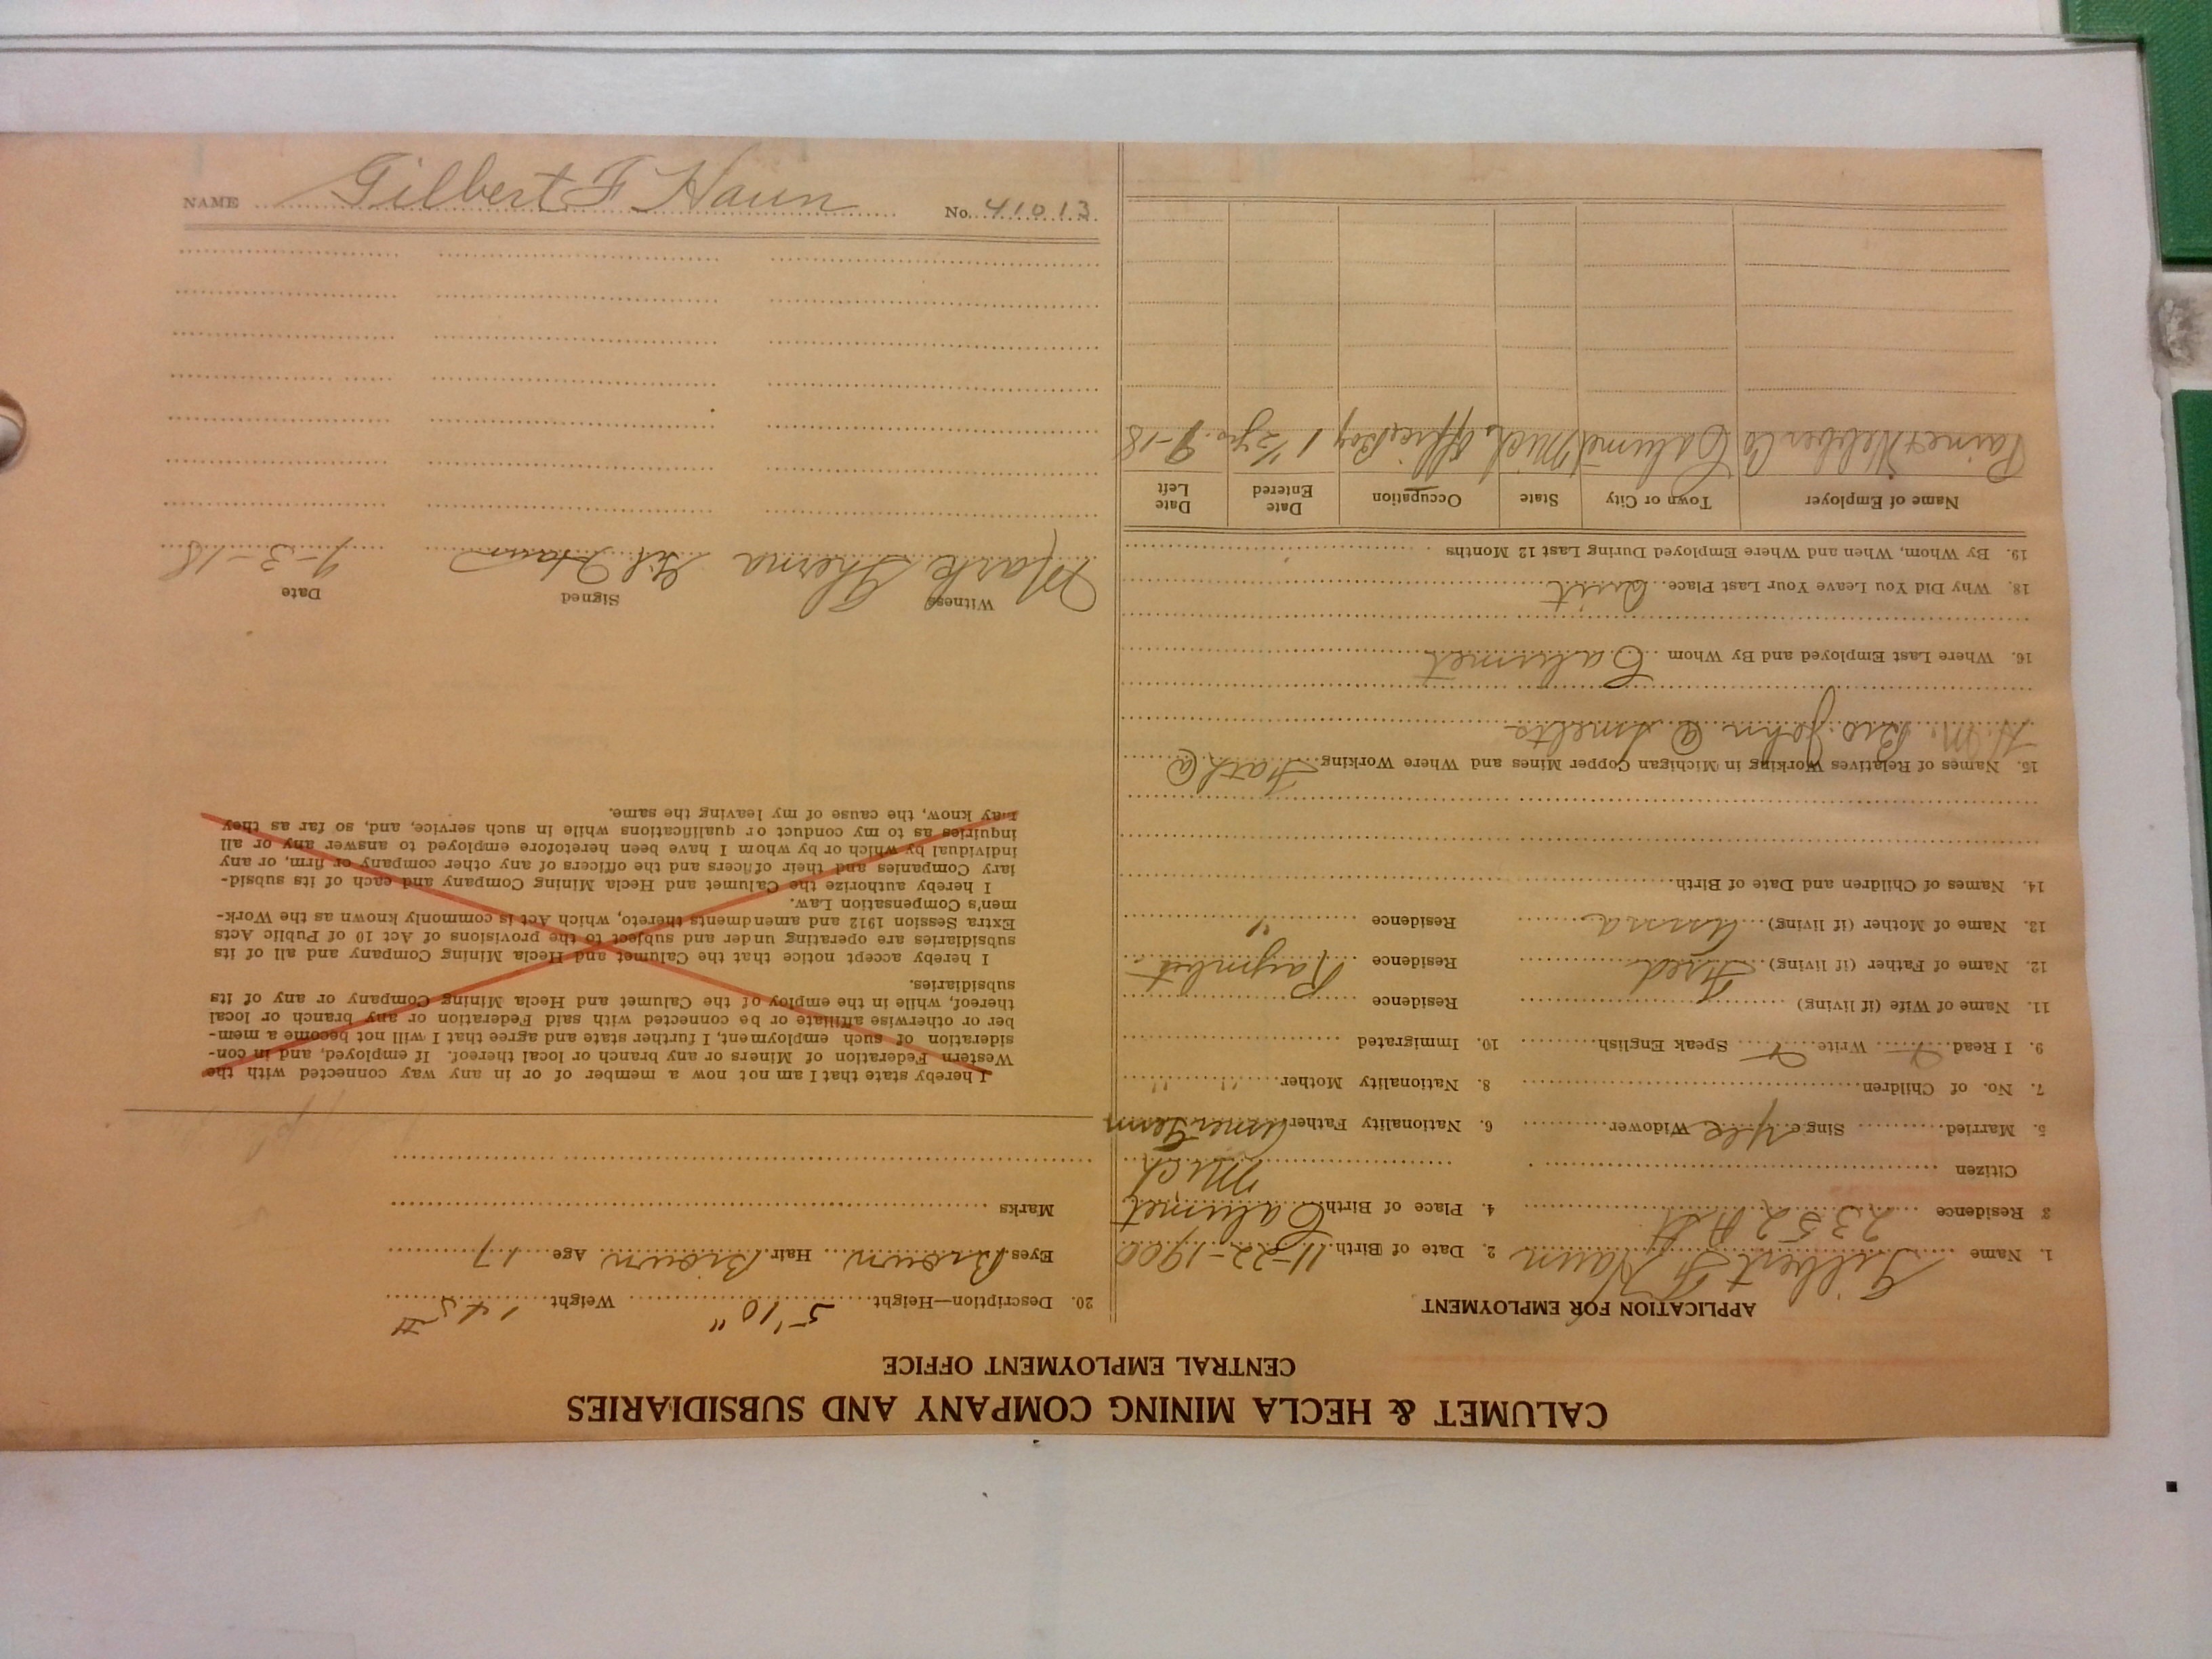 NAME Gilbert F Haun No. 41013
CALUMET & HECLA MINING COMPANY AND SUBSIDIARIES
CENTRAL EMPLOYMENT OFFICE
APPLICATION FOR EMPLOYMENT
1. Name Gilbert F Haun 2. Date of Birth 11-22-1900
3 Residence 2352 B St 4. Place of Birth Calumet
Citizen Mich
5. Married Single yes Widower 6. Nationality Father Amer Germ
7. No. of Children 8. Nationality Mother " "
9. I Read Write Speak English 10. Immigrated
11. Name of Wife (if living) Residence
12. Name of Father (if living) Fred Residence Raymbult
13. Name of Mother (if living) Anna Residence "
14. Names of Children and Date of Birth.
15. Names of Relatives Working in Michigan Copper Mines and Where Working Fath @
H.M. Bro. John @ Smelte
16. Where Last Employed and By Whom Calumet
18. Why Did You Leave Your Last Place Quit
19. By Whom, When and Where Employed During Last 12 Months
Name of Employer Town or City State Occupation Date Entered Date Left
Paine & Webber Co Calumet Mich Office Boy 1 1/2 yrs. 9-18
20. Description—Height 5'10" Weight 145 #
Eyes Brown Hair Brown Age 17
Marks
I hereby state that I am not now a member of or in any way connected with the
Western Federation of Miners or any branch or local thereof. If employed, and in con-
sideration of such employment, I further state and agree that I will not become a mem-
ber or otherwise affiliate or be connected with said Federation or any branch or local
thereof, while in the employ of the Calumet and Hecla Mining Company or any of its
subsidiaries.
I hereby accept notice that the Calumet and Hecla Mining Company and all of its
subsidiaries are operating under and subject to the provisions of Act 10 of Public Acts
Extra Session 1912 and amendments thereto, which Act is commonly known as the Work-
men's Compensation Law.
I hereby authorize the Calumet and Hecla Mining Company and each of its subsid-
iary Companies and their officers and the officers of any other company or firm, or any
individual by which or by whom I have been heretofore employed to answer any or all
inquiries as to my conduct or qualifications while in such service, and, so far as they
may know, the cause of my leaving the same.
Witness Signed Date
Mark Gil Haun 9-3-18